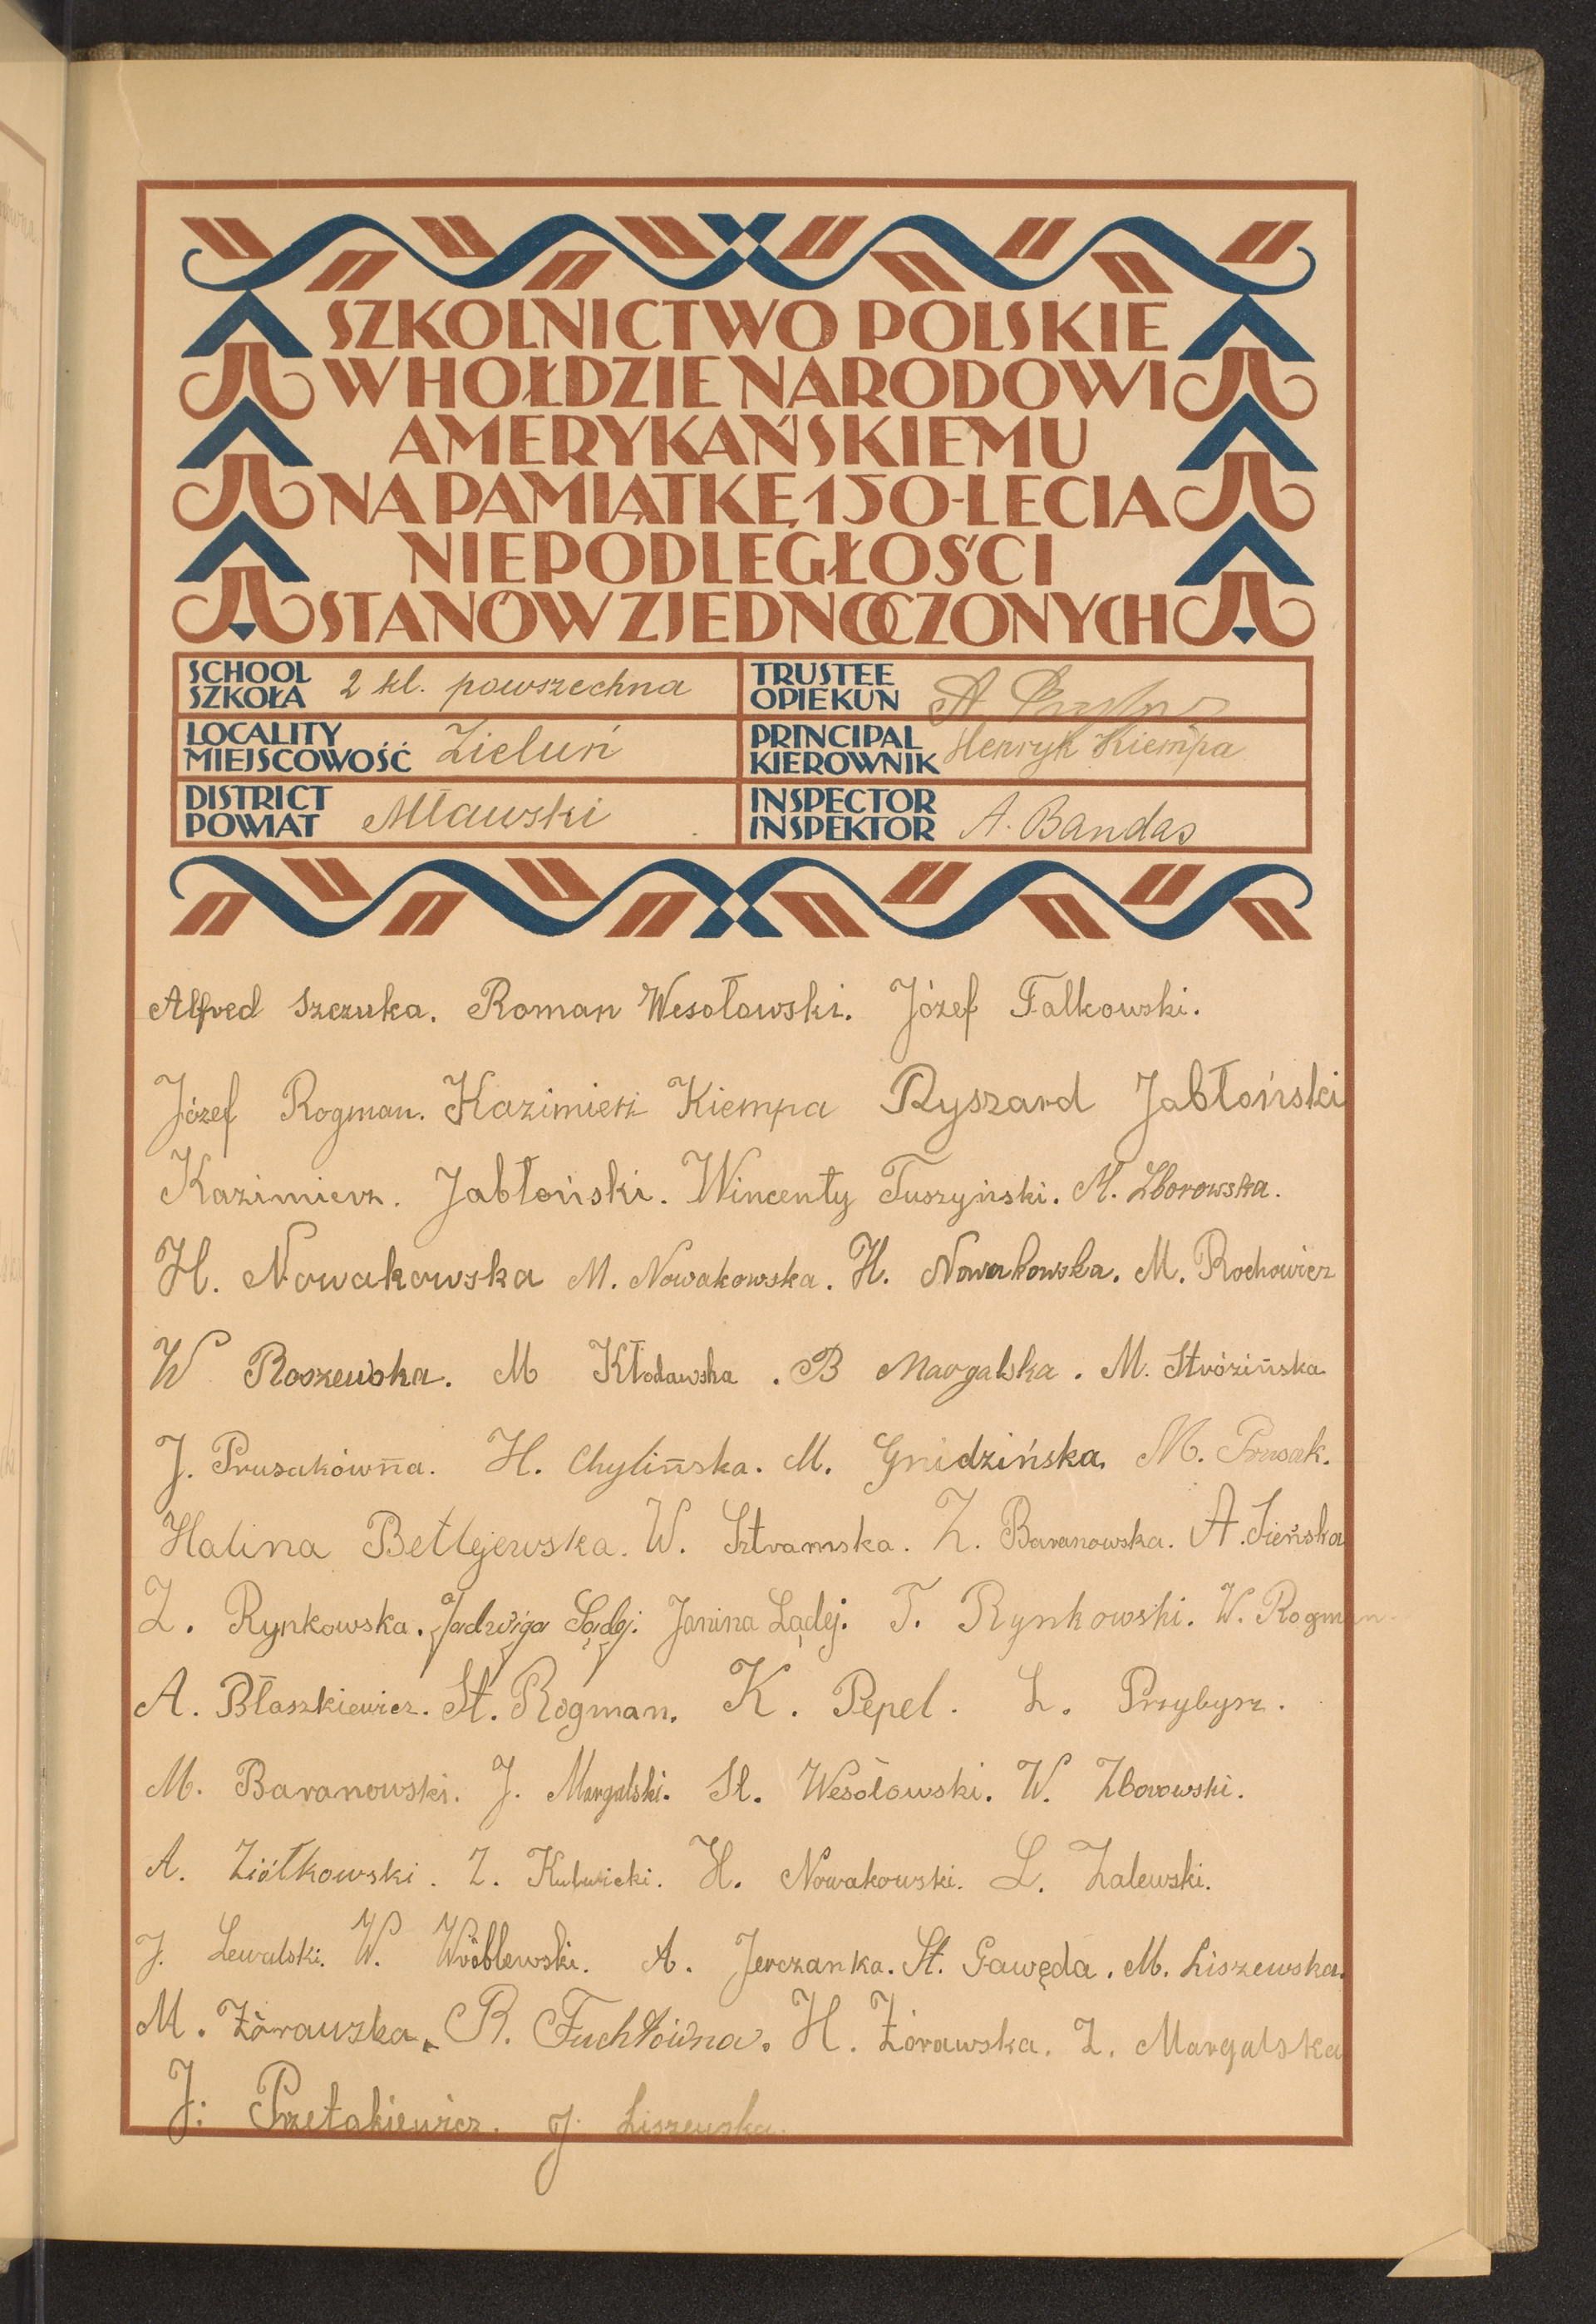 SZKOLNICTWO POLSKIE
W HOŁDZIE NARODOWI
AMERYKAŃSKIEMU
NA PAMIĄTKĘ 150-LECIA
NIEPODLEGŁOŚCI
STANÓW ZJEDNOCZONYCH
SCHOOL
SZKOŁA 2 kl. powszechna
TRUSTEE
OPIEKUN A
LOCALITY
MIEJSCOWOŚĆ Zieluń
PRINCIPAL
KIEROWNIK Henryk Kiempa
DISTRICT
POWIAT Mławski
INSPECTOR
INSPEKTOR A. Bandas
Alfred Szczuka. Roman Wesołowski. Józef Falkowski.
Józef Rogman. Kazimierz Kiempa Ryszard Jabłoński
Kazimierz. Jabłoński. Wincenty Tuszyński. M. Zborowska.
H. Nowakowska M. Nowakowska. H. Nowakowska. M. Rochowicz
W Roszewska. M Kłodawska. B Margalska. M. Stróźińska
J. Prusakówna. H. Chylińska. M. Gnidzińska. M. Prusak.
Halina Betlejewska. W. Sztramska. Z. Baranowska. A. Sieńska
Z. Rynkowska. Jadwiga Lądej. Janina Lądej. T. Rynkowski. W. Rogman
A. Błaszkiewicz. St. Rogman. K. Pepel. L. Przybysz.
M. Baranowski. J. Margalski. St. Wesołowski. W. Zborowski.
A. Ziółkowski. Z. Kulwicki. H. Nowakowski. L. Zalewski.
J. Lewalski. W. Wróblewski. A. Jerczanka. St. Gawęda. M. Liszewska.
M. Żórawska. R. Fuchłówna. H. Żórawska. Z. Margalska
J. Przetakiewicz. J. Liszewska.